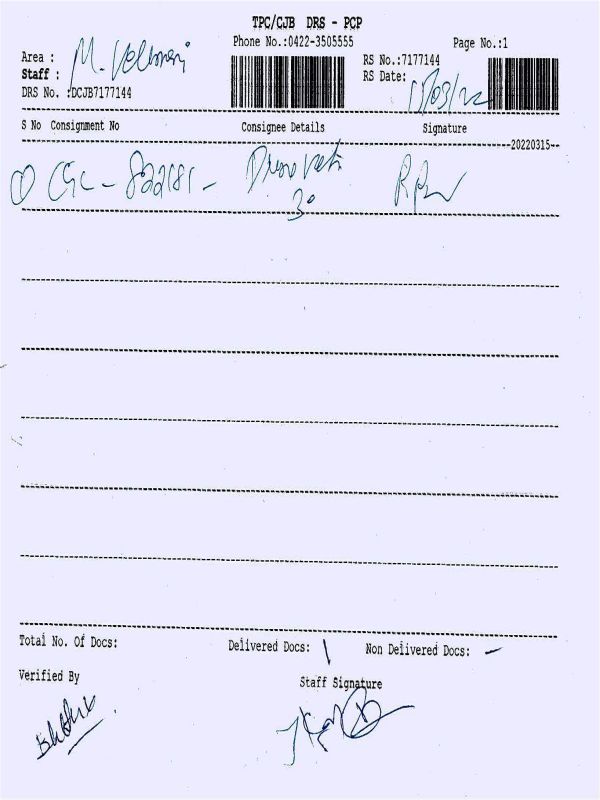 TPC/CJB DRS - PCP
Phone No.:0422-3505555 Page No.:1
Area :
Staff : M.
RS No.:7177144
RS Date: 15/03/22
DRS No. :DCJB7177144
S No Consignment No Consignee Details Signature
--20220315--
①
Total No. Of Docs: Delivered Docs: 1 Non Delivered Docs: –
Verified By Staff Signature